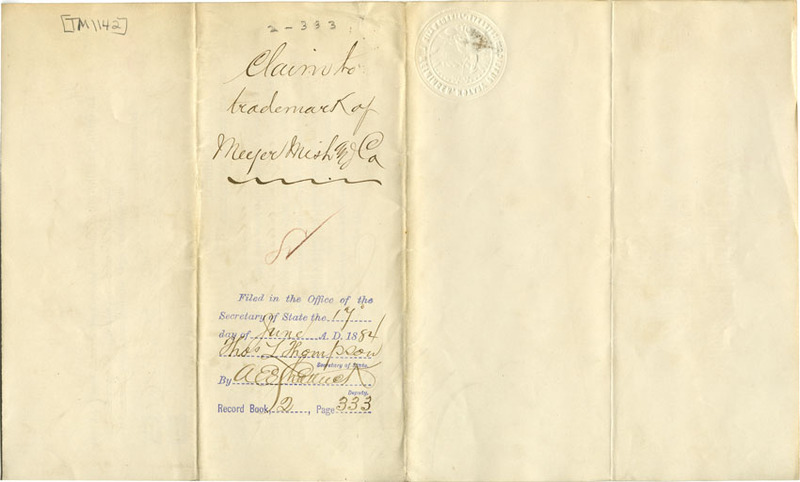 [TM1142]
2-333
Claim to
trademark of
Meyer Mish & Co
Filed in the Office of the
Secretary of State the 17
day of June A. D. 1884
Thos L Thompson
Secretary of State.
By A E
Deputy.
Record Book 2, Page 333